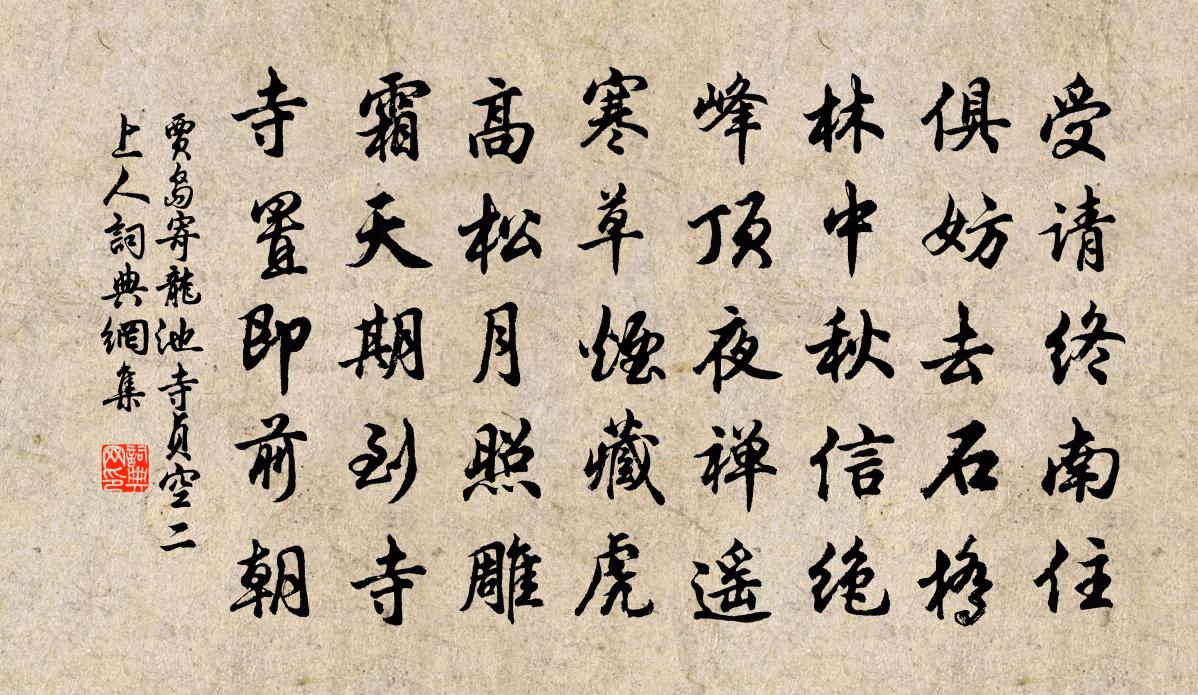 受请终南住
俱妨去石橋
林中秋信绝
峰頂夜禅遥
寒草煙藏虎
高松月照雕
霜天期到寺
寺置即前朝
賈島寄龍池寺貞空二
上人詞典網集
詞典
网印